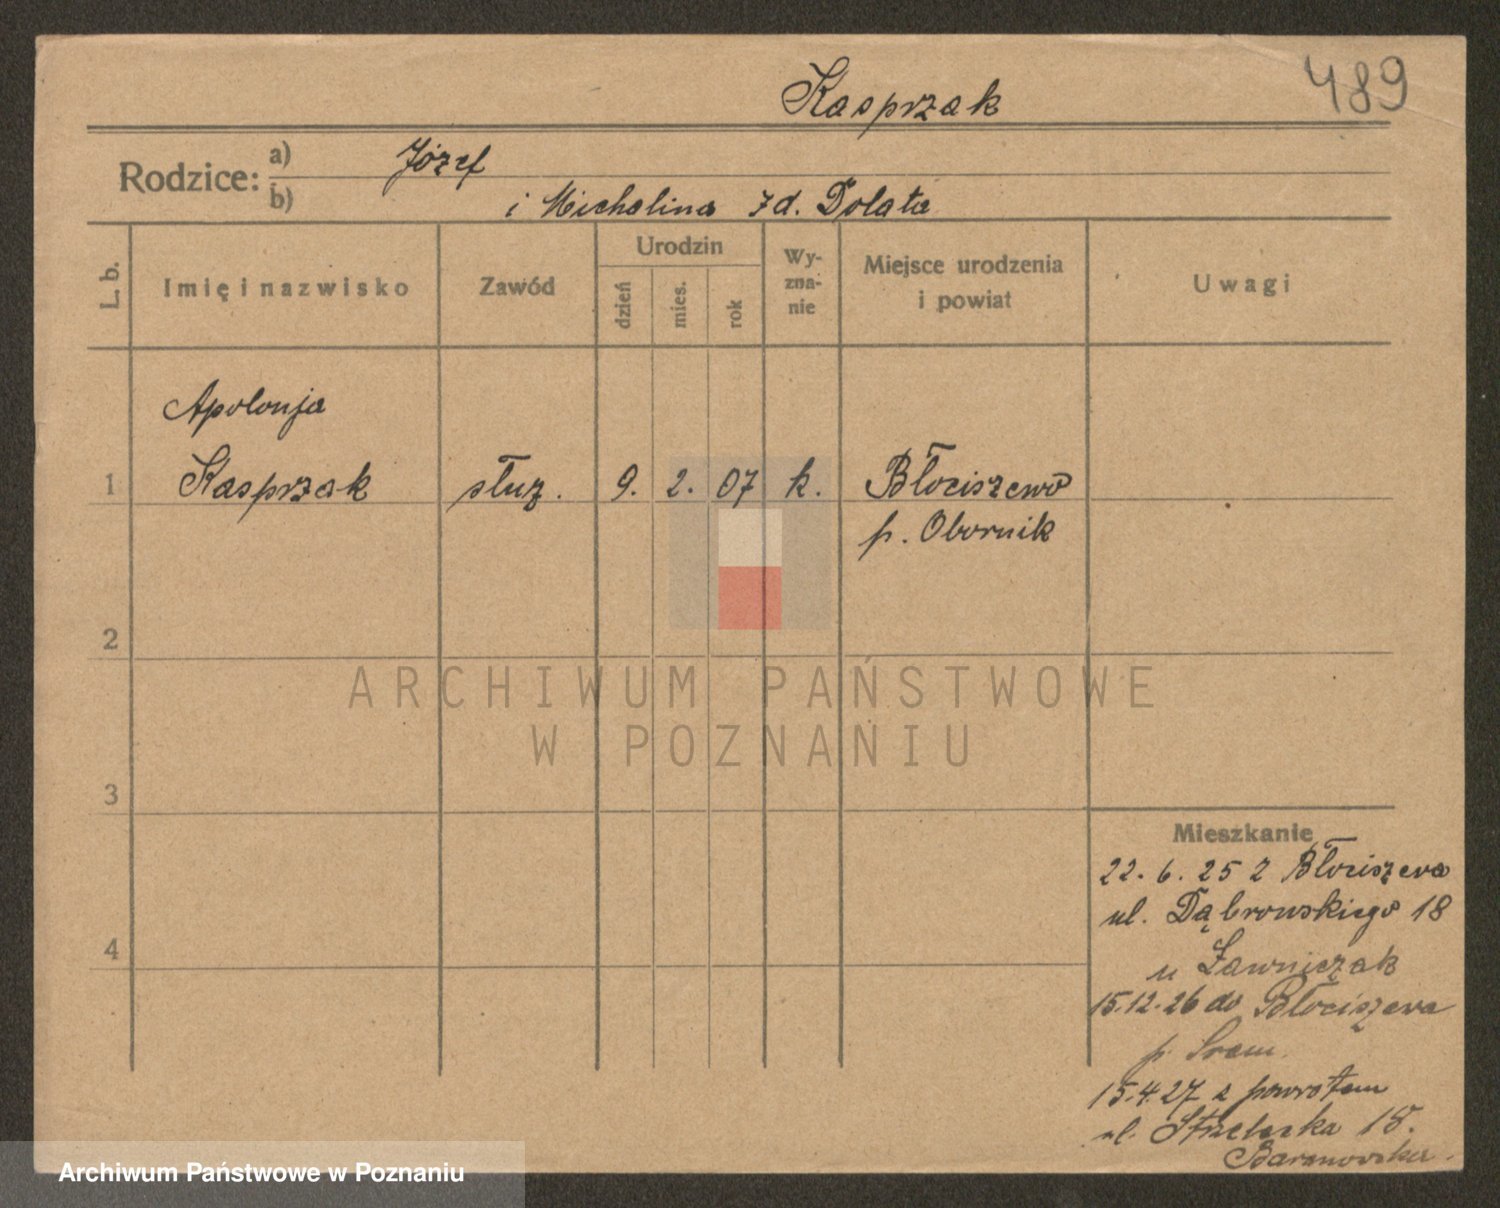 Kasprzak
489
Rodzice:
a) Józef
b) i Michalina zd. Dolata
L. b.
Imię i nazwisko
Zawód
Urodzin
dzień
mies.
rok
Wy-
zna-
nie
Miejsce urodzenia
i powiat
Uwagi
Apolonja
1 Kasprzak służ. 9. 2. 07 k. Błociszewo
p. Obornik
2
ARCHIWUM PAŃSTWOWE
W POZNANIU
3
4
Mieszkanie
22. 6. 25 z Błociszewa
ul. Dąbrowskiego 18
u Ławniczak
15.12.26 do Błociszewa
p. Śrem.
15.4.27 z powrotem
ul. Strzelecka 18.
Baranowska.
Archiwum Państwowe w Poznaniu